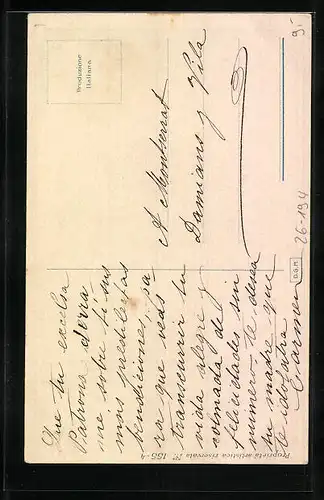 Produzione
Italiana
A Montserrat
Damians y Vila
Que tu excelsa
Patrona derra-
me sobre ti sus
mas prestilegias
bendiciones, pa
ra que veas
transcurrir tu
vida alegre y
colmada de
felicidades sin
numero te desea
tu madre que
te idolatra
Carmen
Proprietà artistica riservata No 155-4
D.G.M.
26-194
9-